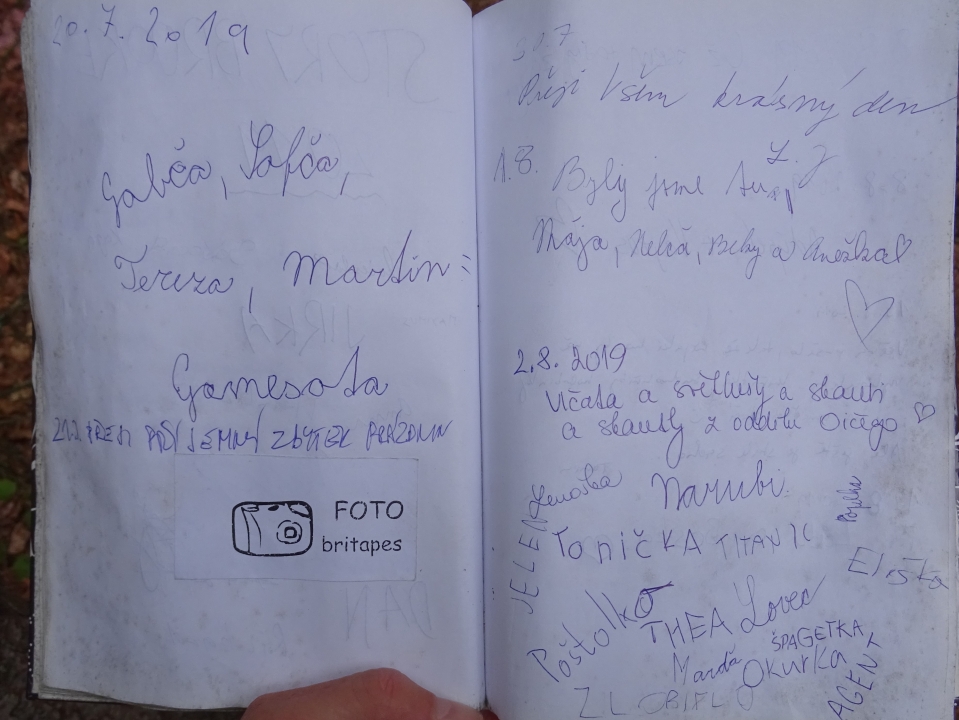 20.7.2019
Gabča, Sofča,
Tereza, Martin:
Gamesota
PŘEJI PŘÍJEMNÝ ZBYTEK PRÁZDNIN
FOTO
britapes
30.7
Přeji Všem krásný den
Z. J
1.8. Byly jsme tu,
Mája, Nelča, Beky a Anežka
2.8.2019
Vlčata a světlušky a skauti
a skautky z oddílu Oičego
Lenočka
Narubi
JELEN
ToničKA TITANIC
Eliška
Poštolka
THEA Lovec
ŠPAGETKA
Marďa Okurka
AGENT